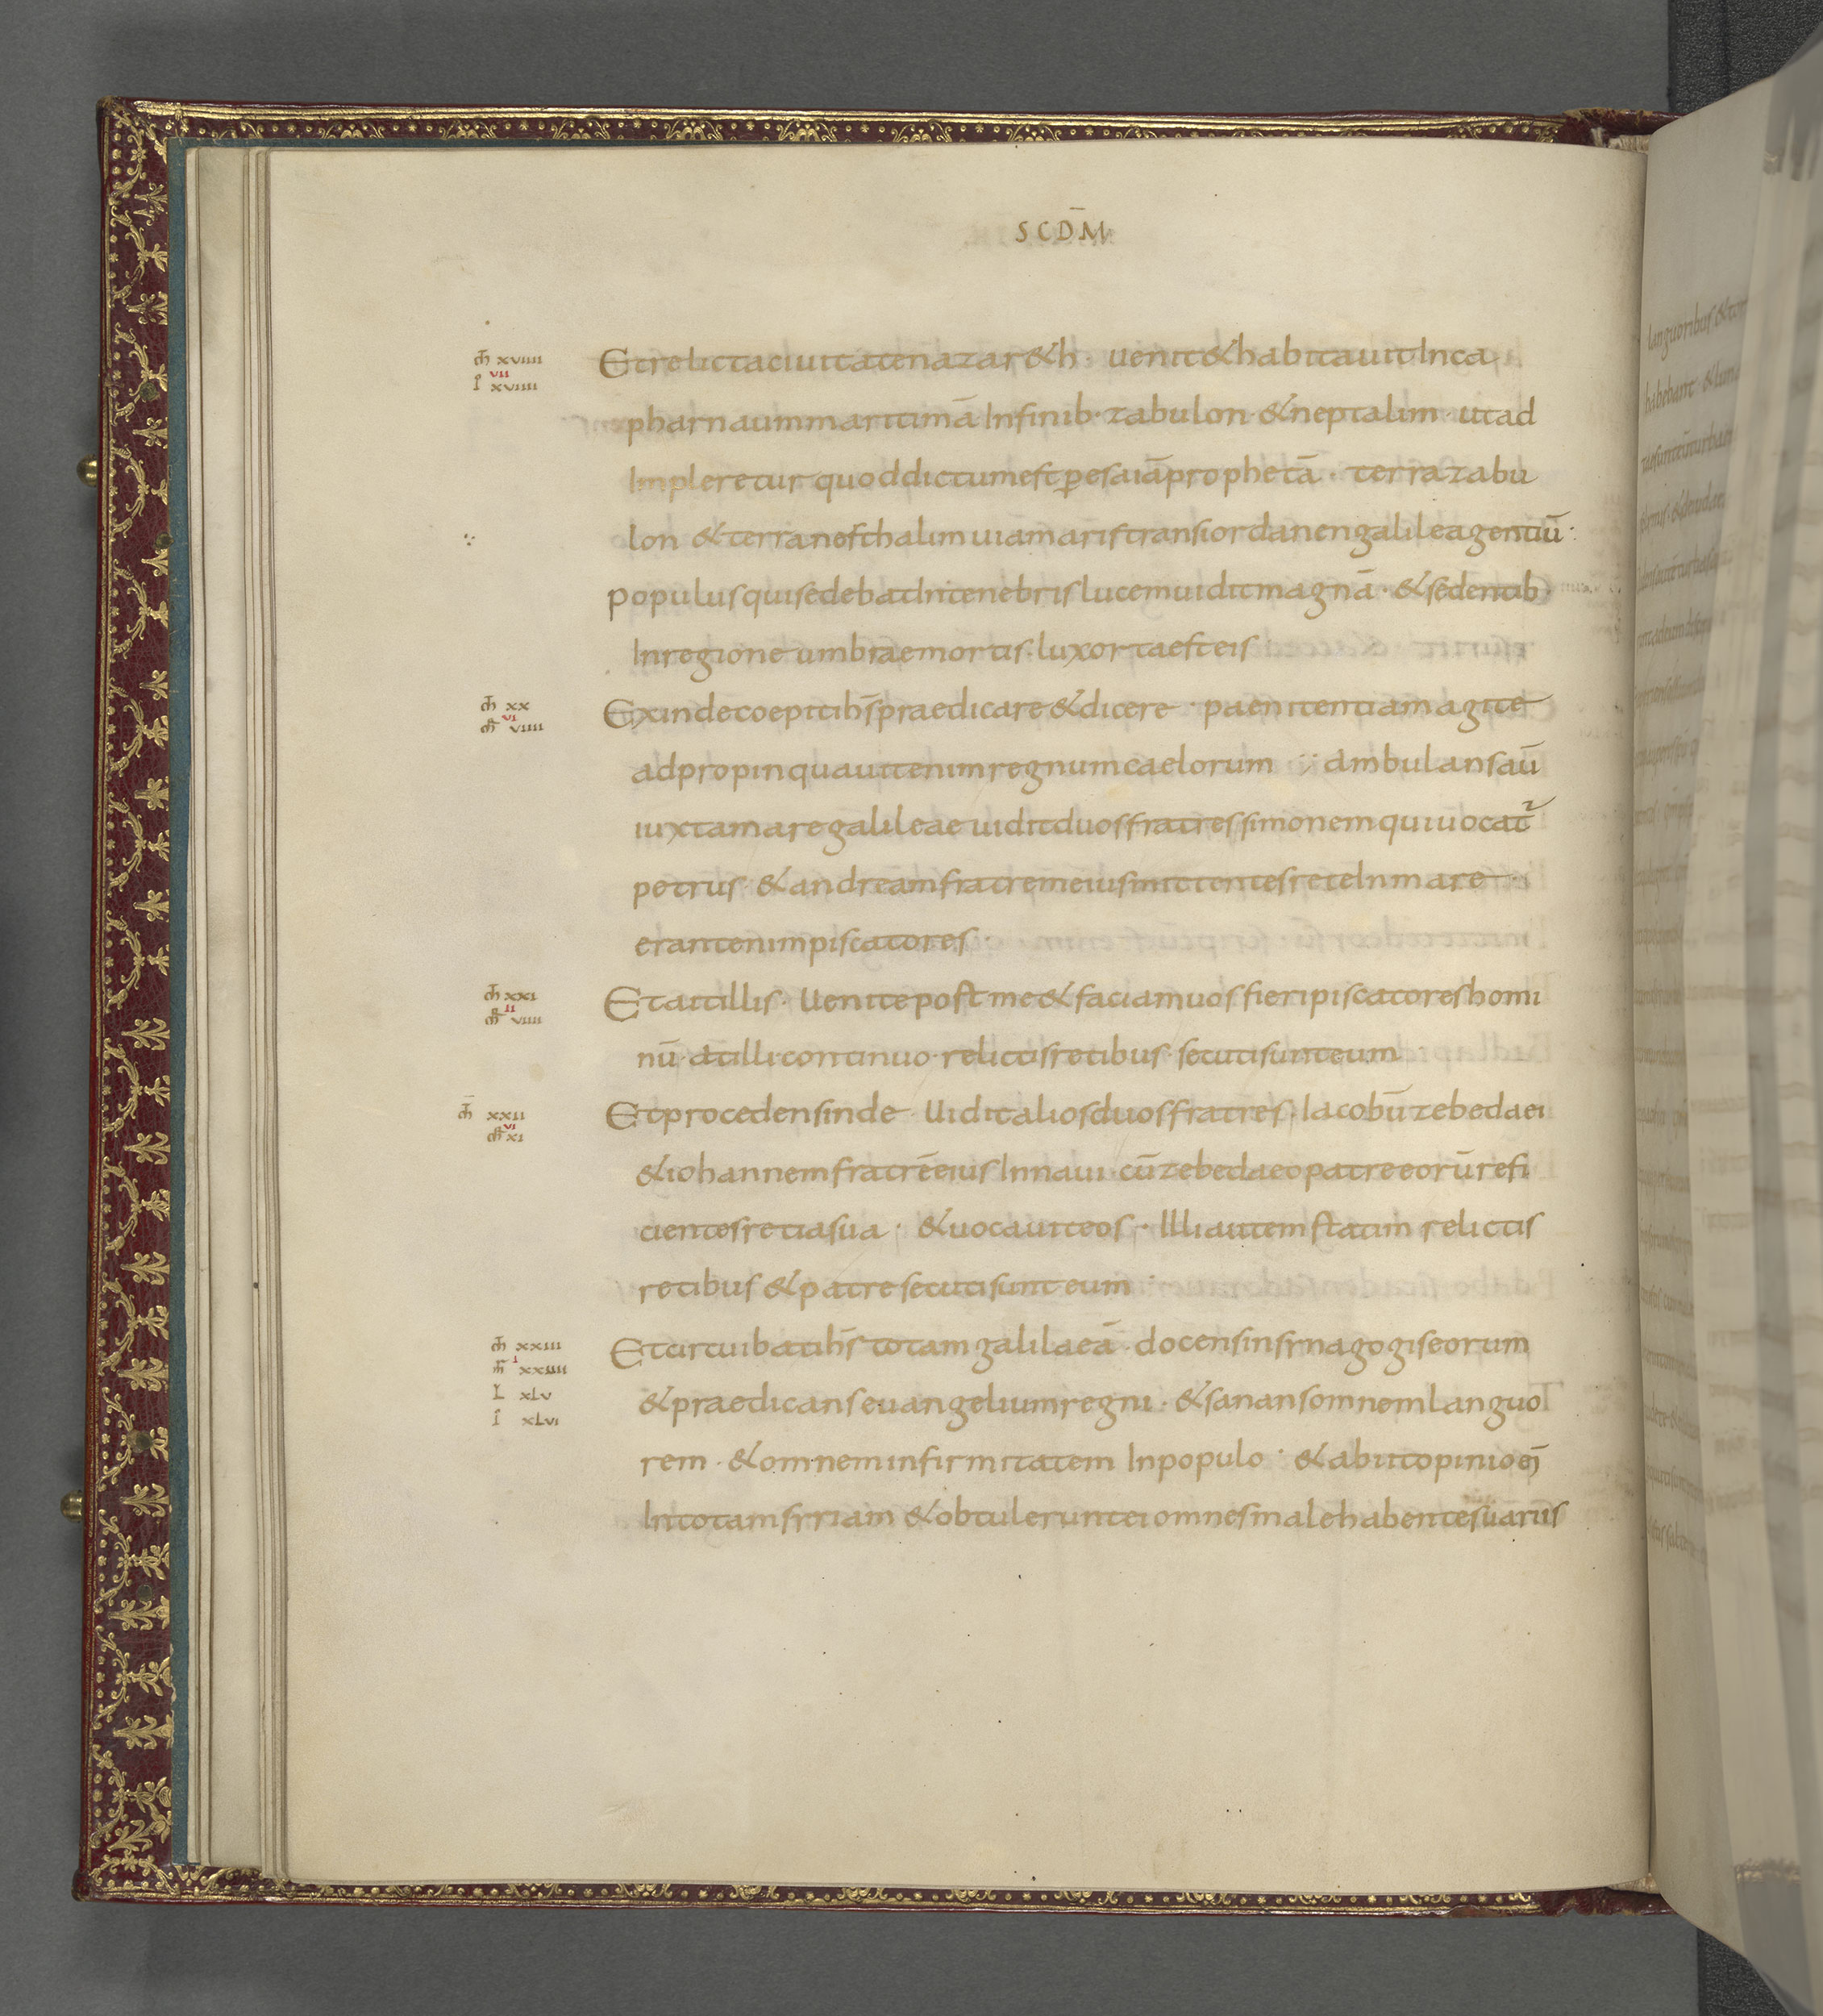 SCDM̄
m̄ xviiii
vii
ī xviiii
Et relicta ciuitate nazar&h · uenit & habitauit In ca
pharnaum maritimā In finib· zabulon · & neptalim · ut ad
Impleretur quod dictum est ꝑ esaiā prophetā · terra zabu
lon & terra nefthalim uia maris trans iordanen galilea gentiū·
populus qui sedebat In tenebris lucem uidit magnā · & sedentib·
In regione umbrae mortis · lux orta est eis
m̄ xx
vi
mr̄ viiii
Exinde coepit ih̄s praedicare & dicere · paenitentiam agite
adpropinquauit enim regnum caelorum ambulans aū
iuxta mare galileae uidit duos fratres simonem qui uocat᷑
petrus · & andream fratrem eius mittentes rete In mare ·
erant enim piscatores ·
m̄ xxi
ii
mr̄ viiii
Et ait illis · Uenite post me & faciam uos fieri piscatores homi
nū · at illi continuo · relictis retibus · secuti sunt eum
m̄ xxii
vi
mr̄ xi
Et procedens inde · Uidit alios duos fratres · Iacobū zebedaei
& iohannem fratrē eius In naui · cū zebedaeo patre eorū refi
cientes retia sua · & uocauit eos · Illi autem statim relictis
retibus & patre secuti sunt eum
m̄ xxiii
i
mr̄ xxiiii
L xLv
ī xLvi
Et circuibat ih̄s totam galilaeā · docens in synagogis eorum
& praedicans euangelium regni · & sanans omnem languo
rem · & omnem infirmitatem In populo · & abiit opinio eī
In totam syriam & obtulerunt ei omnes male habentes uariis
languoribus & tor
habebant · & luna